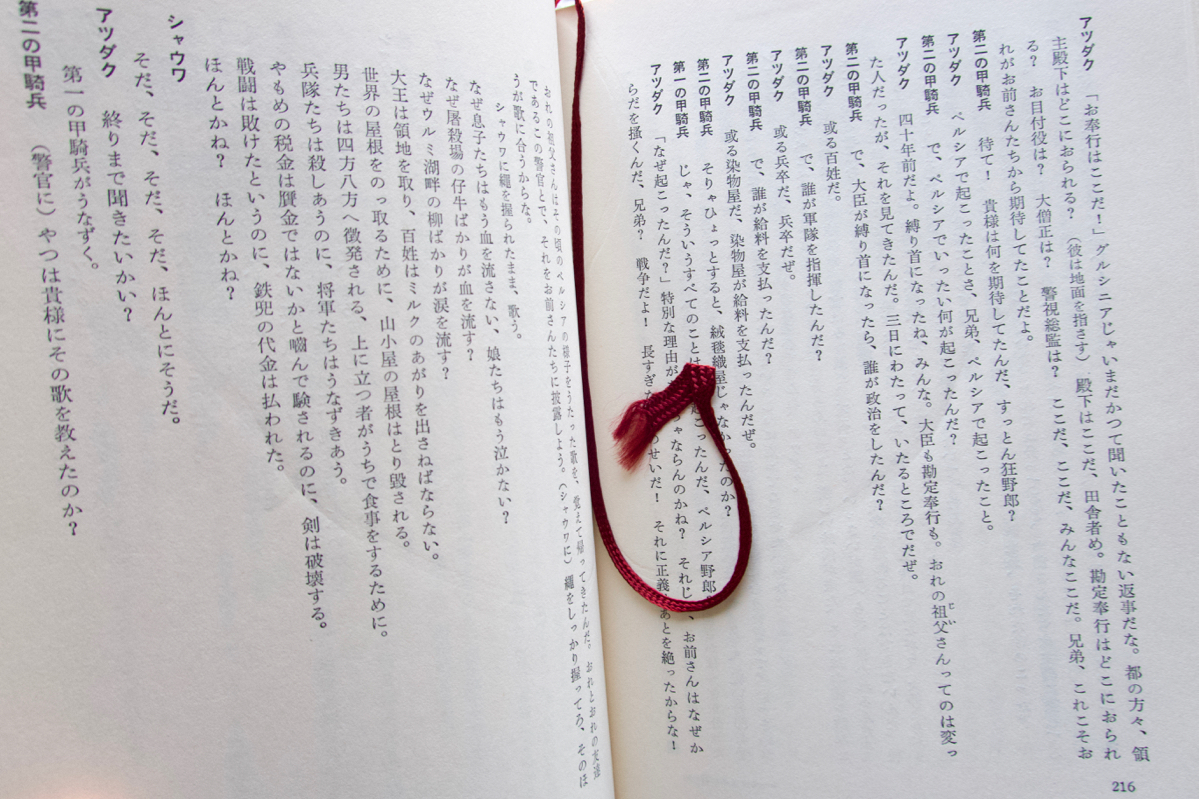 アツダク　「お奉行はここだ！」グルシニアじゃいまだかつて聞いたこともない返事だな。都の方々、領
主殿下はどこにおられる？　（彼は地面を指さす）　殿下はここだ、田舎者め。勘定奉行はどこにおられ
る？　お目付役は？　大僧正は？　警視総監は？　ここだ、ここだ、みんなここだ。兄弟、これこそお
れがお前さんたちから期待してたことだよ。
第二の甲騎兵　待て！　貴様は何を期待してたんだ、すっとん狂野郎？
アツダク　ペルシアで起こったことさ、兄弟、ペルシアで起こったこと。
第二の甲騎兵　で、ペルシアでいったい何が起こったんだ？
アツダク　四十年前だよ。縛り首になったね、みんな。大臣も勘定奉行も。おれの祖父さんってのは変っ
じい
た人だったが、それを見てきたんだ。三日にわたって、いたるところでだぜ。
第二の甲騎兵　で、大臣が縛り首になったら、誰が政治をしたんだ？
アツダク　或る百姓だ。
第二の甲騎兵　で、誰が軍隊を指揮したんだ？
アツダク　或る兵卒だ、兵卒だぜ。
第二の甲騎兵　で、誰が給料を支払ったんだ？
アツダク　或る染物屋だ、染物屋が給料を支払ったんだぜ。
第二の甲騎兵　そりゃひょっとすると、絨毯織屋じゃなかったのか？
第一の甲騎兵　じゃ、そういうすべてのことは 起こったんだ、ペルシア野郎。
アツダク　「なぜ起こったんだ？」特別な理由が ゃならんのかね？　それじ 、お前さんはなぜか
らだを掻くんだ、兄弟？　戦争だよ！　長すぎた のせいだ！　それに正義 あとを絶ったからな！
おれの祖父さんはその頃のペルシアの様子をうたった歌を、覚えて帰ってきたんだ。おれとおれの友達
であるこの警官とで、それをお前さんたちに披露しよう。（シャウワに）縄をしっかり握ってろ、そのほ
うが歌に合うからな。
シャウワに縄を握られたまま、歌う。
なぜ息子たちはもう血を流さない、娘たちはもう泣かない？
なぜ屠殺場の仔牛ばかりが血を流す？
なぜウルミ湖畔の柳ばかりが涙を流す？
大王は領地を取り、百姓はミルクのあがりを出さねばならない。
世界の屋根をのっ取るために、山小屋の屋根はとり毀される。
男たちは四方八方へ徴発される、上に立つ者がうちで食事をするために。
兵隊たちは殺しあうのに、将軍たちはうなずきあう。
やもめの税金は贋金ではないかと嚙んで験されるのに、剣は破壊する。
戦闘は敗けたというのに、鉄兜の代金は払われた。
ほんとかね？　ほんとかね？
シャウワ
そだ、そだ、そだ、そだ、ほんとにそうだ。
アツダク　終りまで聞きたいかい？
第一の甲騎兵がうなずく。
第二の甲騎兵　（警官に）やつは貴様にその歌を教えたのか？
216